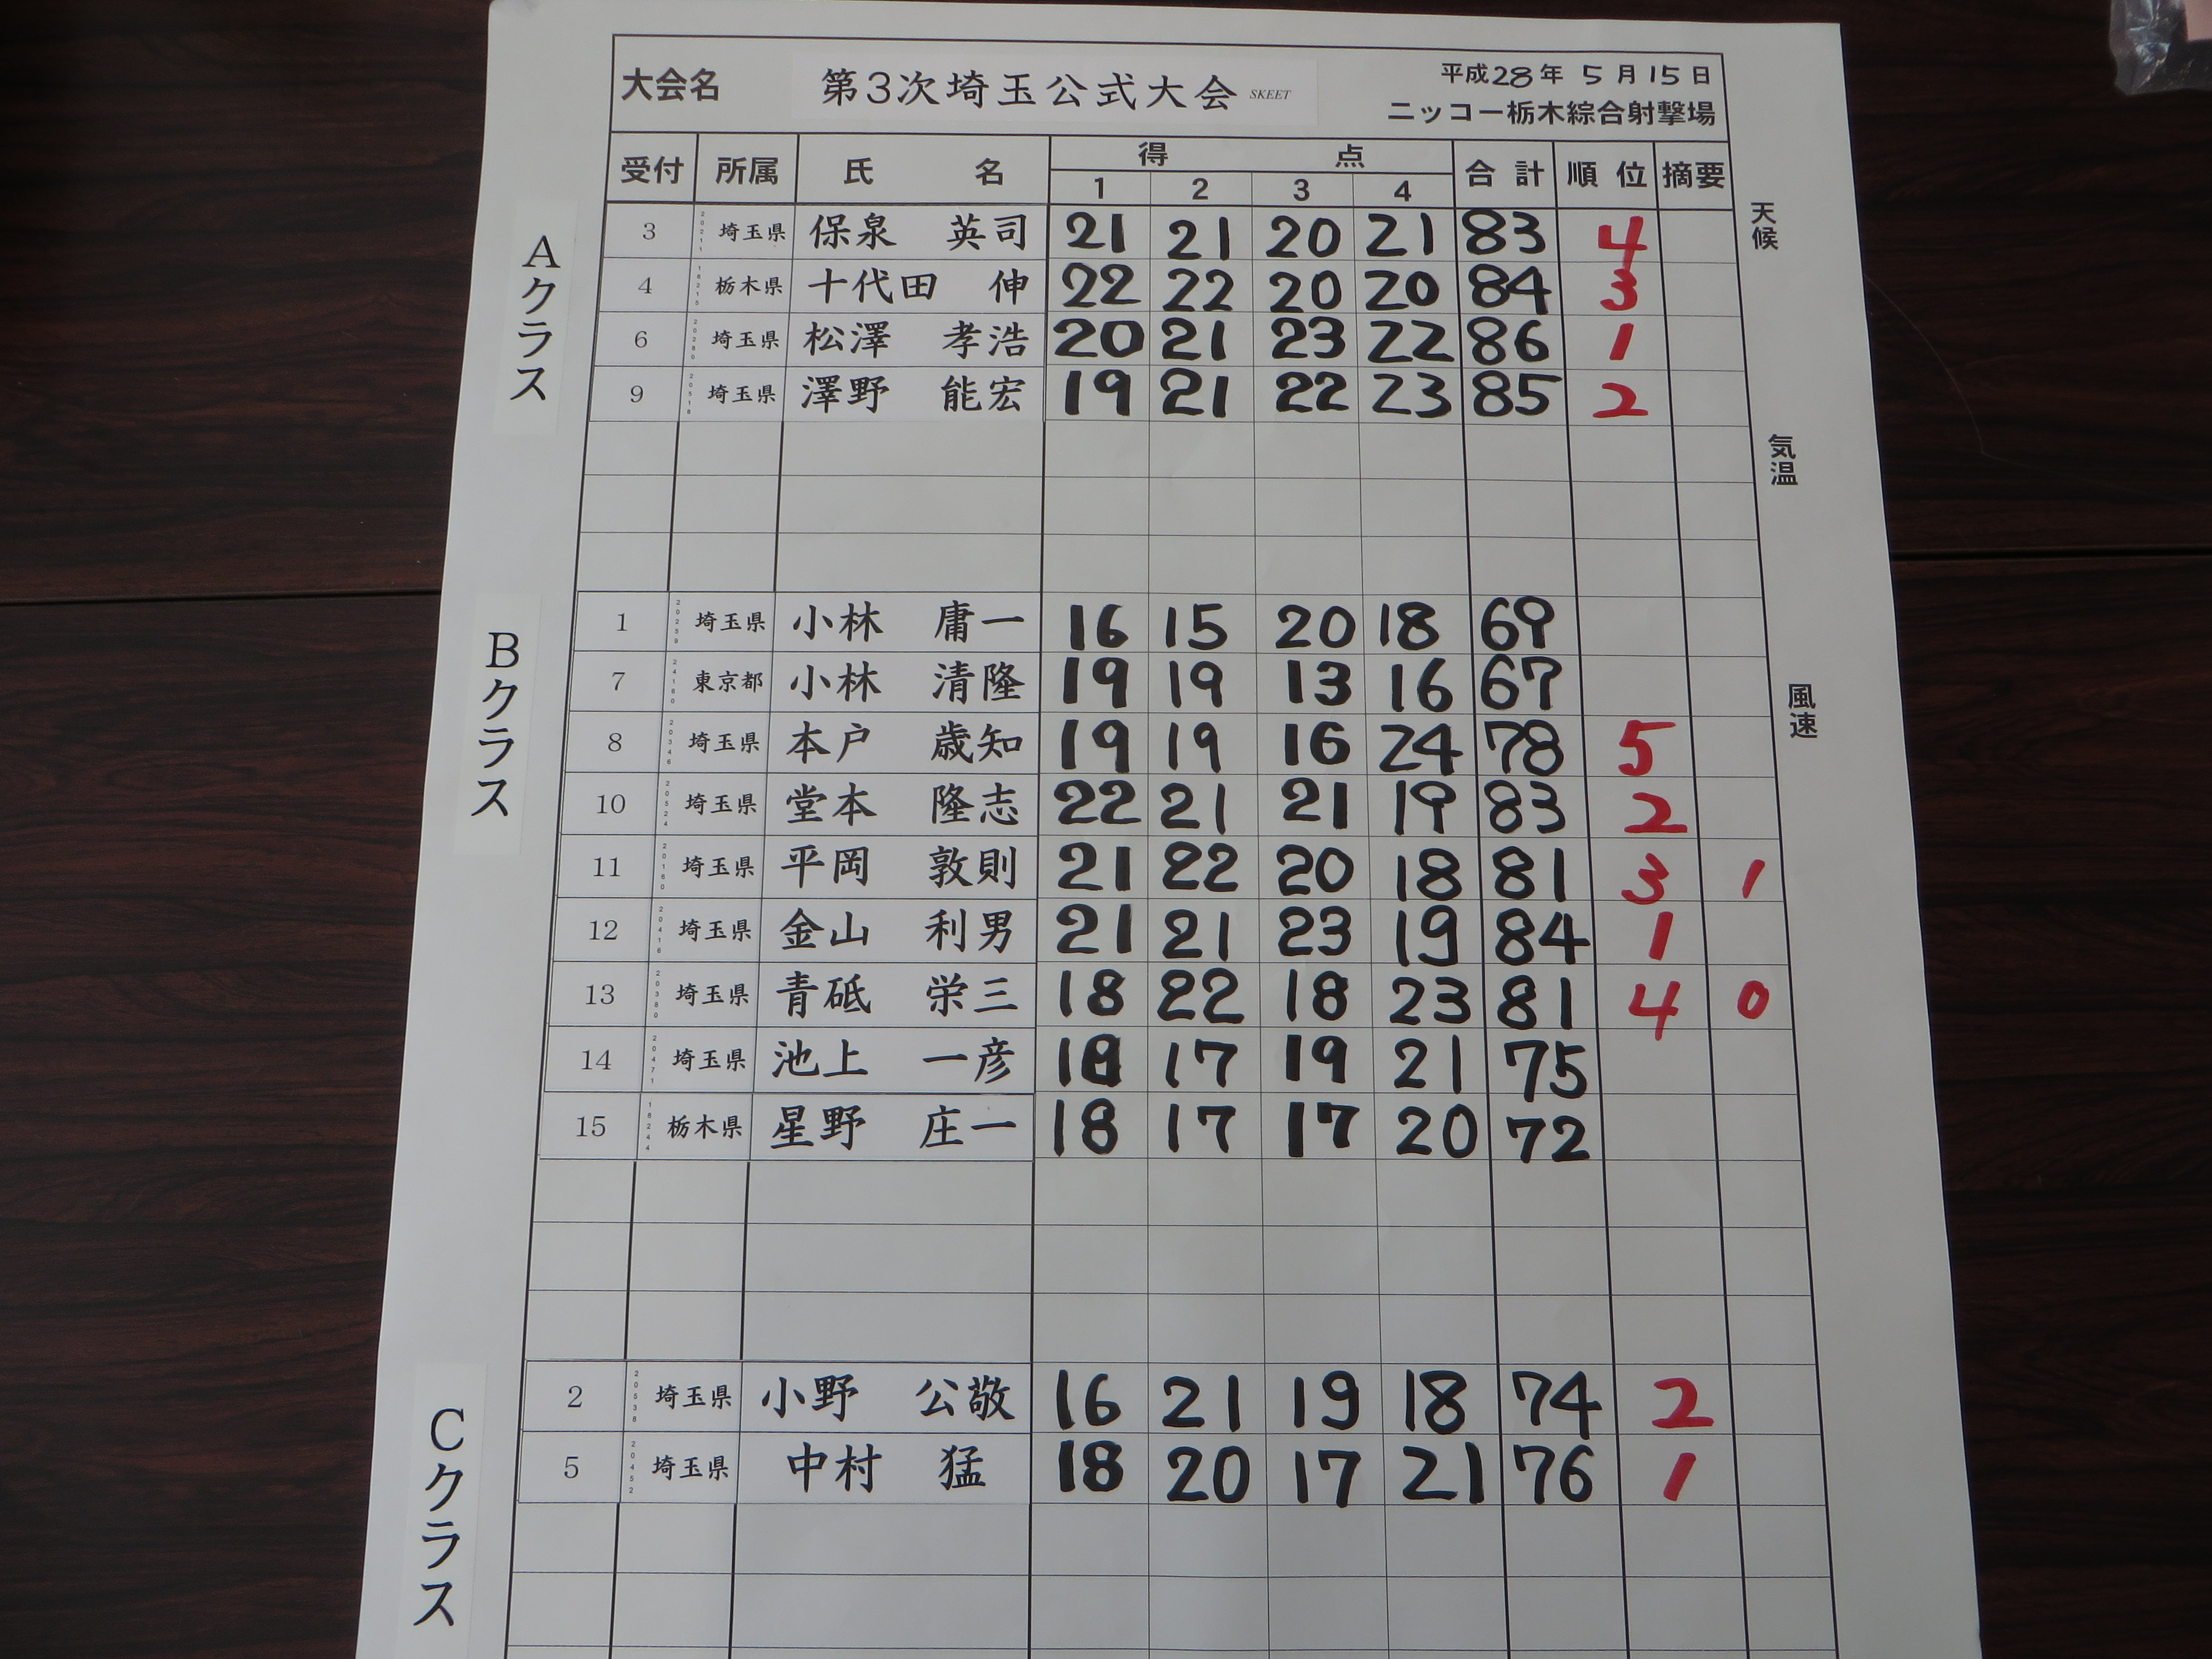 大会名 第3次埼玉公式大会 SKEET 平成28年 5月15日
ニッコー栃木綜合射撃場
受付 所属 氏 名 得 点 合計 順位 摘要
1 2 3 4
天候
気温
風速
Aクラス
3 埼玉県 保泉 英司 21 21 20 21 83 4
4 栃木県 十代田 伸 22 22 20 20 84 3
6 埼玉県 松澤 孝浩 20 21 23 22 86 1
9 埼玉県 澤野 能宏 19 21 22 23 85 2
Bクラス
1 埼玉県 小林 庸一 16 15 20 18 69
7 東京都 小林 清隆 19 19 13 16 67
8 埼玉県 本戸 歳知 19 19 16 24 78 5
10 埼玉県 堂本 隆志 22 21 21 19 83 2
11 埼玉県 平岡 敦則 21 22 20 18 81 3 1
12 埼玉県 金山 利男 21 21 23 19 84 1
13 埼玉県 青砥 栄三 18 22 18 23 81 4 0
14 埼玉県 池上 一彦 18 17 19 21 75
15 栃木県 星野 庄一 18 17 17 20 72
Cクラス
2 埼玉県 小野 公敬 16 21 19 18 74 2
5 埼玉県 中村 猛 18 20 17 21 76 1